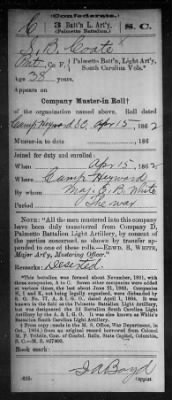 (Confederate.)
C 3 Batt'n L. Art'y, S. C.
(Palmetto Battalion.)
S. B. Coate
Pvt, Co. F, Palmetto Batt'n, Light Art'y,
South Carolina Vols.
Age 38 years.
Appears on
Company Muster-in Roll†
of the organization named above. Roll dated
Camp Heyward SC, Apr 15, 1862
Muster-in to date 186
Joined for duty and enrolled:
When Apr 15, 1862
Where Camp Heyward
By whom Maj. E. B. White
Period The war
NOTE: "All the men mustered into this company
have been duly transferred from Company D,
Palmetto Battalion Light Artillery, by consent of
the parties concerned as shown by transfer ap-
pended to one of these rolls.—EDWD. B. WHITE,
Major Art'y, Mustering Officer."
Remarks: Deserted.
*This company was formed about November, 1861, with
three companies, A to C. Seven other companies were added
at various times, the last about June 23, 1863. Companies
H, I and K, not being legally organized, were disbanded by
S. O. No. 77, A. & I. G. O., dated April 1, 1864. It was
known in the field as the Palmetto Battalion Light Artillery,
but was designated the 3d Battalion South Carolina Light
Artillery by the A. & I. G. O. It was also known as White's
Battalion South Carolina Light Artillery.
† From copy made in the M. S. Office, War Department,
in Oct., 1904
Book mark:
J A Boyd
Copyist.